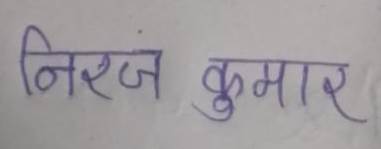 निरजं कुमार